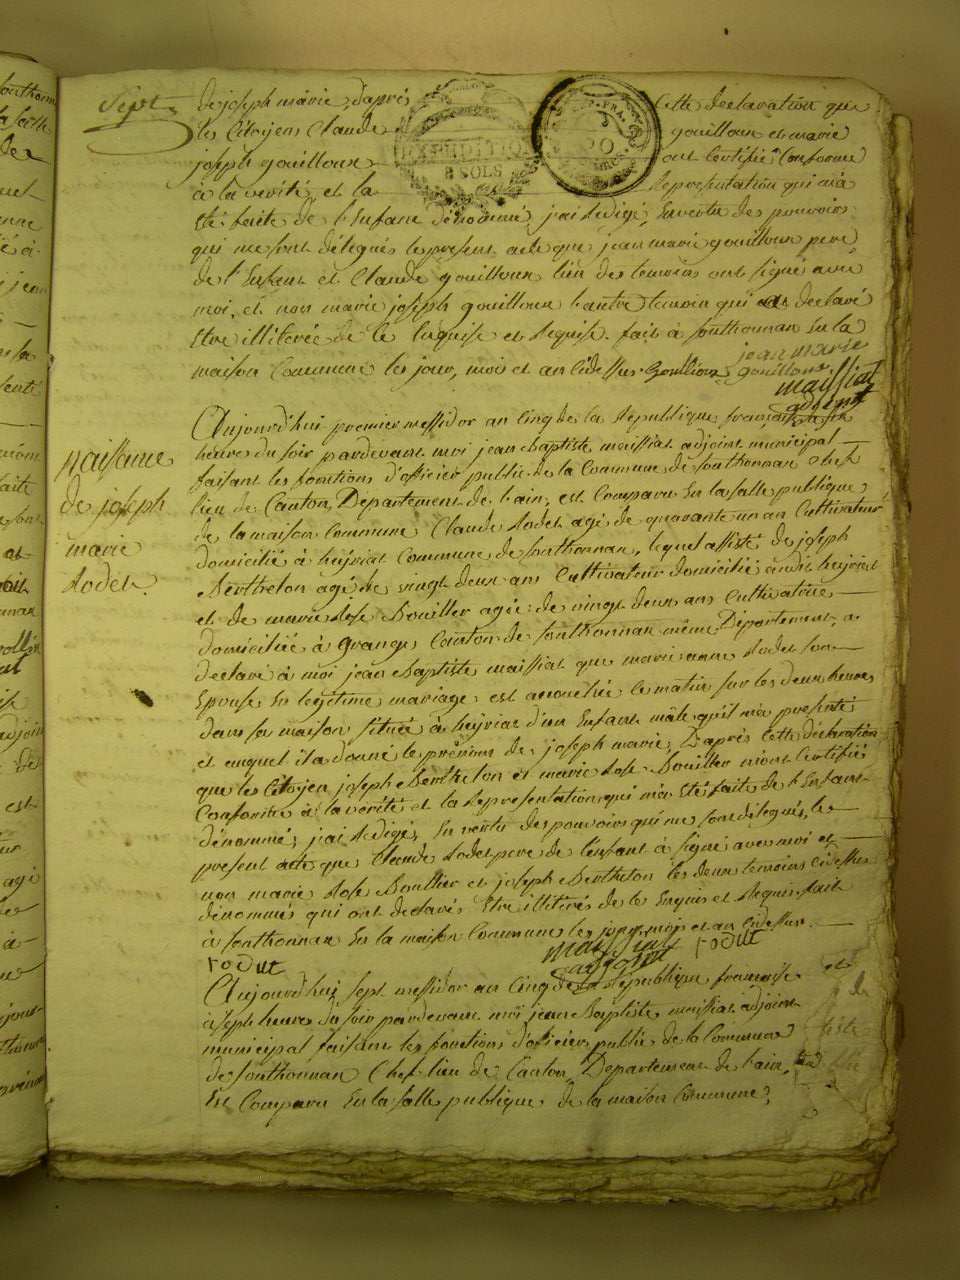 Sept
de joseph marie, d'aprés cette declaration que
les Citoyens Claude gouilloux et marie
joseph gouilloux ont Certifié Conforme
à la verité, et la Representation qui m'a
été faite de l'Enfant dénommé, j'ai Redigé, En vertu des pouvoirs
qui me sont délegués le present acte que jean marie gouilloux pere
de l'Enfant et Claude gouilloux l'un des temoins ont signé avec
moi, et non marie joseph gouilloux l'autre temoin qui a declaré
Etre illiterée de le Enquise et Requise. fait à Sonthonnax En la
maison Commune les jour, mois et an Cidessus Gouilloux jean marie
gouilloux
maissiat
adjoint
EXPEDITION
8 SOLS
REP. FRA.
20
naissance
de joseph
marie
Rodet.
Aujourd'hui premier messidor an Cinq de la Republique française
heures du soir pardevant moi jean Baptiste maissiat adjoint municipal
faisant les fonctions d'officier public de la Commune de Sonthonnax Chef
lieu de Canton, Département de l'ain, est Comparu En la salle publique
de la maison Commune Claude Rodet agé de quarante un an Cultivateur
domicilié à heyriat Commune de Sonthonnax, lequel assisté de joseph
Berthelon agé de vingt deux ans Cultivateur domicilié audit heyriat
et de marie Rose Bouiller agée de vingt deux ans Cultivatrice
domiciliée à Granges Canton de Sonthonnax même Département, a
declaré à moi jean Baptiste maissiat que marie anne Rodet son
Epouse En legitime mariage est accouchée ce matin sur les deux heures
dans sa maison située à heyriat d'un Enfant mâle qu'il m'a presenté
et auquel il a donné les prénoms de joseph marie, D'aprés Cette déclaration
que les Citoyen joseph Berthelon et marie Rose Bouiller m'ont Certifié
Conforme à la verité et la Representation qui m'a Eté fait de l'Enfant
dénommé, j'ai Redigé, En vertu des pouvoirs qui me sont délegués, le
present acte que Claude Rodet pere de l'enfant à signé avec moi et
non marie Rose Bouiller et joseph Berthelon les deux temoins Cidessus
dénommés qui ont declarés Etre illiterés de le Enquis et Requis. fait
à Sonthonnax En la maison Commune les jour, mois et an Cidessus.
rodet maissiat adjoint rodet
Aujourd'hui sept messidor an Cinq de la Republique française et
à sept heures du soir pardevant moi jean Baptiste maissiat adjoint
municipal faisant les fonctions d'officier public de la Commune
de Sonthonnax Chef lieu de Canton, Departement de l'ain,
Est Comparu En la salle publique de la maison Commune,